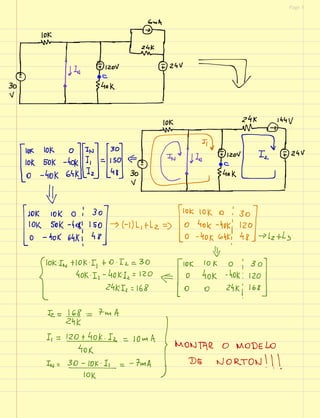 Page 3
6mA
10K
24K
I_N
120V
24V
c
40K
30
V
10K
24K
144V
I_1
I_N
I_N
120V
I_2
24V
c
40K
30
V
[10K 10K 0] [I_N] [30]
[10K 50K -40K] [I_1] = [150]
[0 -40K 64K] [I_2] [48]
[10K 10K 0 | 30]
[10K 50K -40K | 150] → (-1)L_1+L_2 ⇒
[0 -40K 64K | 48]
[10K 10K 0 | 30]
[0 40K -40K | 120]
[0 -40K 64K | 48] → L_2+L_3
[10K 10K 0 | 30]
[0 40K -40K | 120]
[0 0 24K | 168]
10K·I_N + 10K·I_1 + 0·I_2 = 30
40K·I_1 - 40K·I_2 = 120
24K I_2 = 168
I_2 = 168/24K = 7mA
I_1 = (120+40K·I_2)/40K = 10mA
I_N = (30-10K·I_1)/10K = -7mA
MONTAR O MODELO
DE NORTON!!!